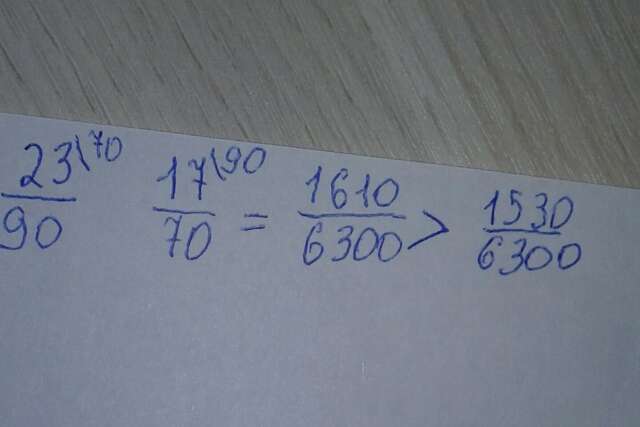 23\70 / 90 17\90 / 70 = 1610 / 6300 > 1530 / 6300